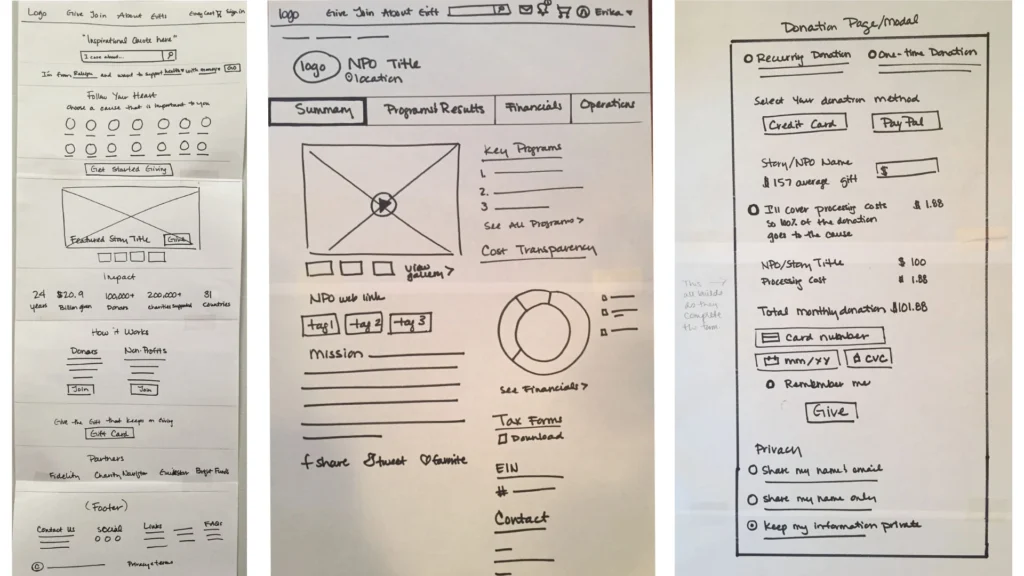 Logo Give Join About Gifts Easy Cart Sign in
"Inspirational Quote here"
I care about...
I'm from and want to support health with money Go
Follow Your Heart
Choose a cause that is important to you
Get Started Giving
Featured Story Title Give
Impact
24 $20.9 100,000+ 200,000+ 31
years Billion given Donors Charities Supported Countries
How it Works
Donors Non-Profits
Join Join
Give the Gift that keeps on giving
Gift Card
Partners
Fidelity Charity Navigator GuideStar
(Footer)
Contact Us Social Links FAQs
Privacy + terms
logo Give Join About Gift Erika
logo
NPO Title
location
Summary Programs & Results Financials Operations
Key Programs
1.
2.
3
See All Programs >
Cost Transparency
View
gallery >
NPO web link
tag 1 tag 2 tag 3
Mission
See Financials >
Tax Forms
Download
f share tweet favorite
EIN
#
Contact
Donation Page/Modal
Recurring Donation One-time Donation
Select Your donation method
Credit Card PayPal
Story/NPO Name
$157 average gift $
I'll cover processing costs $1.88
so 100% of the donation
goes to the cause
NPO/Story Title $100
Processing Cost 1.88
Total monthly donation $101.88
Card number
mm/yy CVC
Remember me
Give
Privacy
Share my name & email
Share my name only
Keep my information private
This →
all builds
as they
complete
the